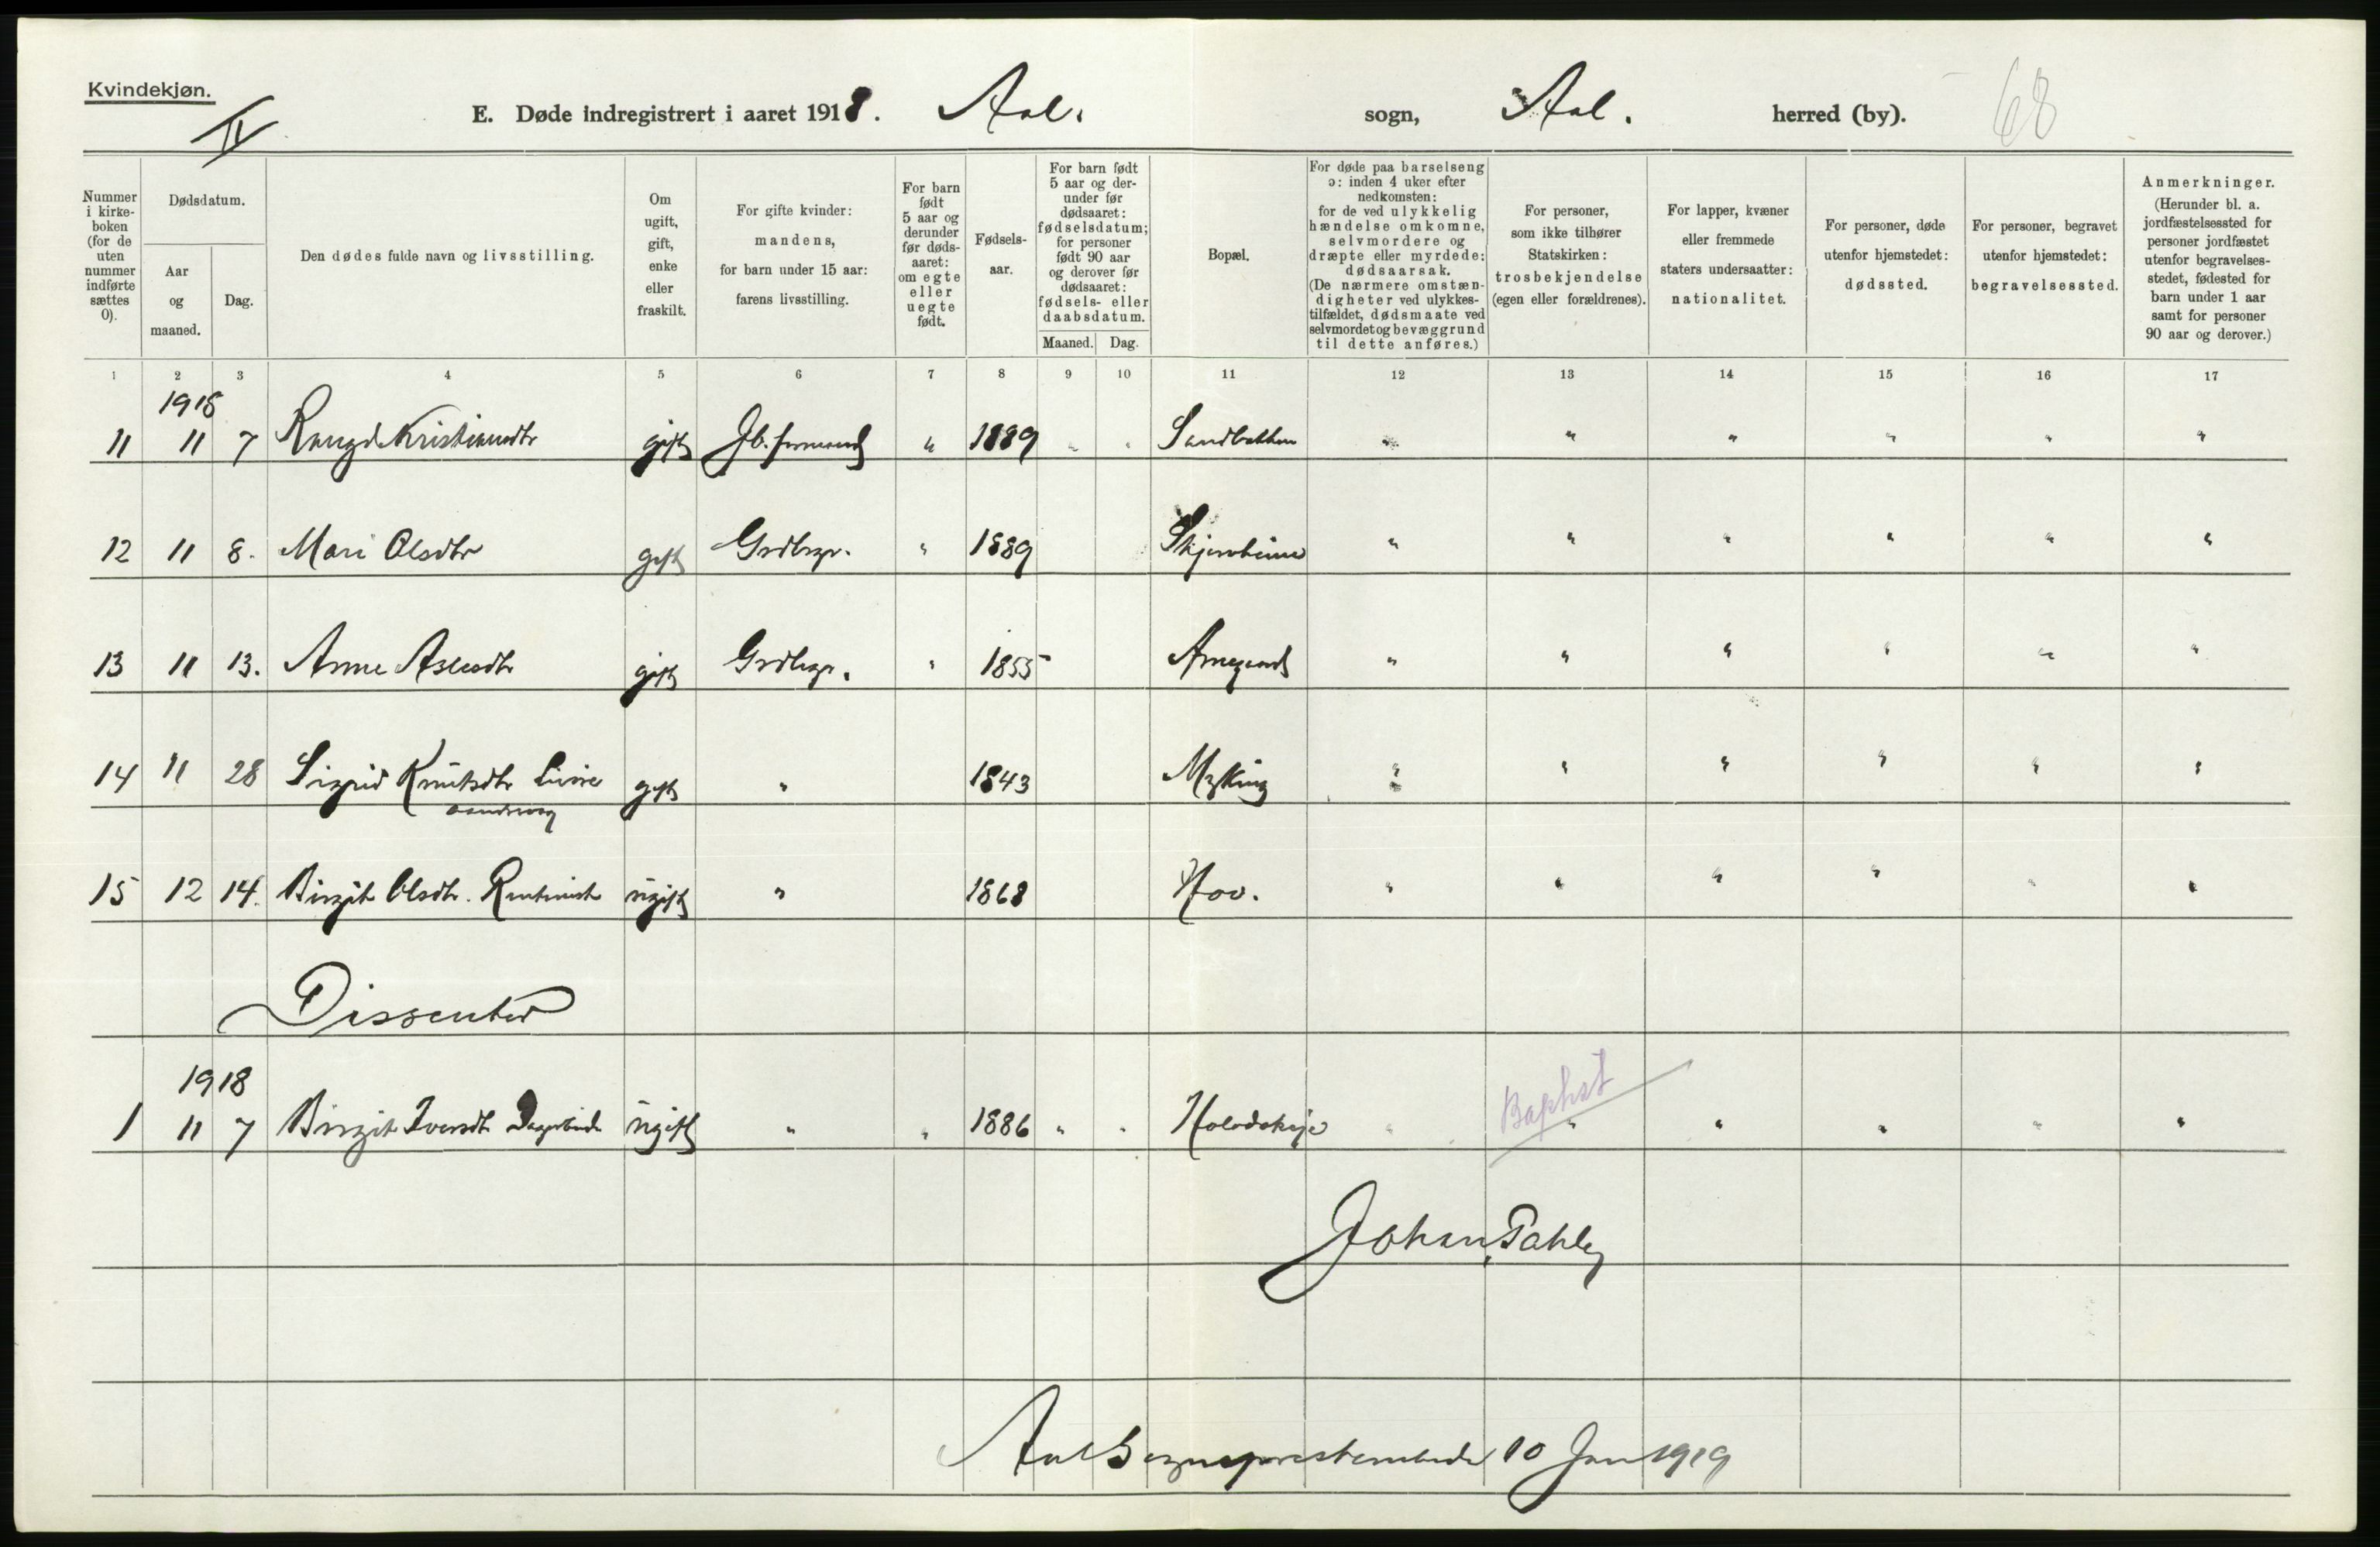 Kvindekjøn.
IV
E. Døde indregistrert i aaret 1918. Aal. sogn, Aal. herred (by). 68
Nummer i kirkeboken (for de uten nummer indførte sættes 0).
Dødsdatum.
Aar og maaned.
Dag.
Den dødes fulde navn og livsstilling.
Om ugift, gift, enke eller fraskilt.
For gifte kvinder: mandens, for barn under 15 aar: farens livsstilling.
For barn født 5 aar og derunder før dødsaaret: om egte eller uegte født.
Fødselsaar.
For barn født 5 aar og derunder før dødsaaret: fødselsdatum; for personer født 90 aar og derover før dødsaaret: fødsels- eller daabsdatum.
Maaned. Dag.
Bopæl.
For døde paa barselseng ɔ: inden 4 uker efter nedkomsten: for de ved ulykkelig hændelse omkomne, selvmordere og dræpte eller myrdede: dødsaarsak. (De nærmere omstændigheter ved ulykkestilfældet, dødsmaate ved selvmordet og bevæggrund til dette anføres.)
For personer, som ikke tilhører Statskirken: trosbekjendelse (egen eller forældrenes).
For lapper, kvæner eller fremmede staters undersaatter: nationalitet.
For personer, døde utenfor hjemstedet: dødssted.
For personer, begravet utenfor hjemstedet: begravelsessted.
Anmerkninger. (Herunder bl. a. jordfæstelsessted for personer jordfæstet utenfor begravelsesstedet, fødested for barn under 1 aar samt for personer 90 aar og derover.)
1 2 3 4 5 6 7 8 9 10 11 12 13 14 15 16 17
1918
11 11 7 gift " 1889 " " " " " " " "
12 11 8. Mari Olsdtr gift Grdbrgr. " 1889 " " " " " "
13 11 13. Anne Aslesdtr gift Grdbrgr. " 1855 " " " " " "
14 11 28 Sigrid Knutsdtr gift " 1843 Myking " " " " " "
15 12 14. Birgit Olsdtr. ugift " 1868 Hov. " " " " " "
Dissenter
1918
1 11 7 Birgit Iversdtr ugift " " 1886 " " " Baptist " " " " "
Johan Pahle
Aal Sogneprestembede 10 Jan 1919